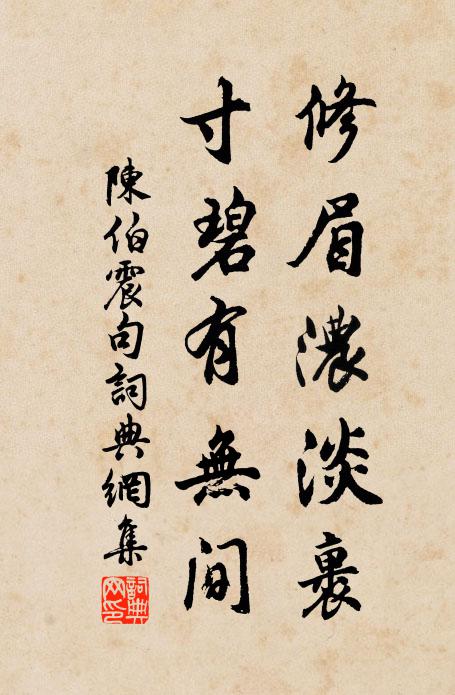 修眉濃淡裏
寸碧有無间
陳伯震句詞典網集
詞典网印